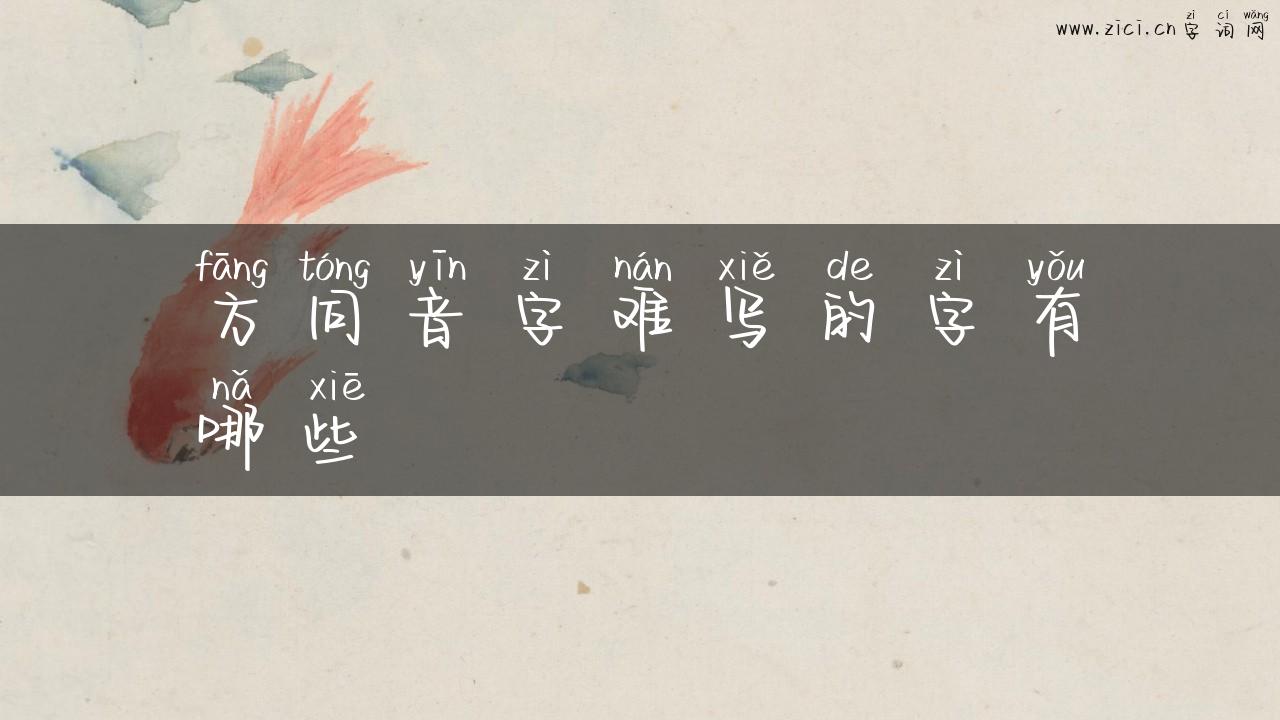 zì cí wǎng
www.zici.cn 字词网
fāng tóng yīn zì nán xiě de zì yǒu
方同音字难写的字有
nǎ xiē
哪些